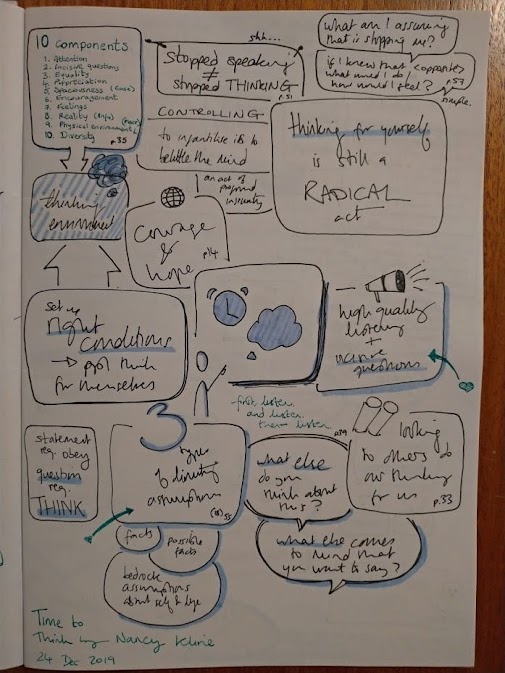 10 components
1. Attention
2. Incisive questions
3. Equality
4. Appreciation
5. Spaciousness (Ease)
6. Encouragement
7. Feelings
8. Reality (Info)
9. Physical environment
10. Diversity
p.35
shh...
Stopped speaking
≠
stopped THINKING
p.51
What am I assuming
that is stopping me?
if I knew that (opposite)
what would I do/
how would I feel?
p.57
simple.
CONTROLLING
to infantilise is to
belittle the mind
an act of
profound
insecurity
thinking for yourself
is still a
RADICAL
act
thinking
environment
Courage
&
hope
p14
set up
right
conditions
→ ppl think
for themselves
high quality
listening
+
incisive
questions
first, listen,
and listen,
then listen
statement
req. obey
question
req.
THINK
3
types
of limiting
assumptions
55
facts
possible
facts
bedrock
assumptions
about self & life
what else
do you
think about
this?
what else comes
to mind that
you want to say?
looking
to others do
our thinking
for us
p.33
Time to
Think by Nancy Kline
24 Dec 2019